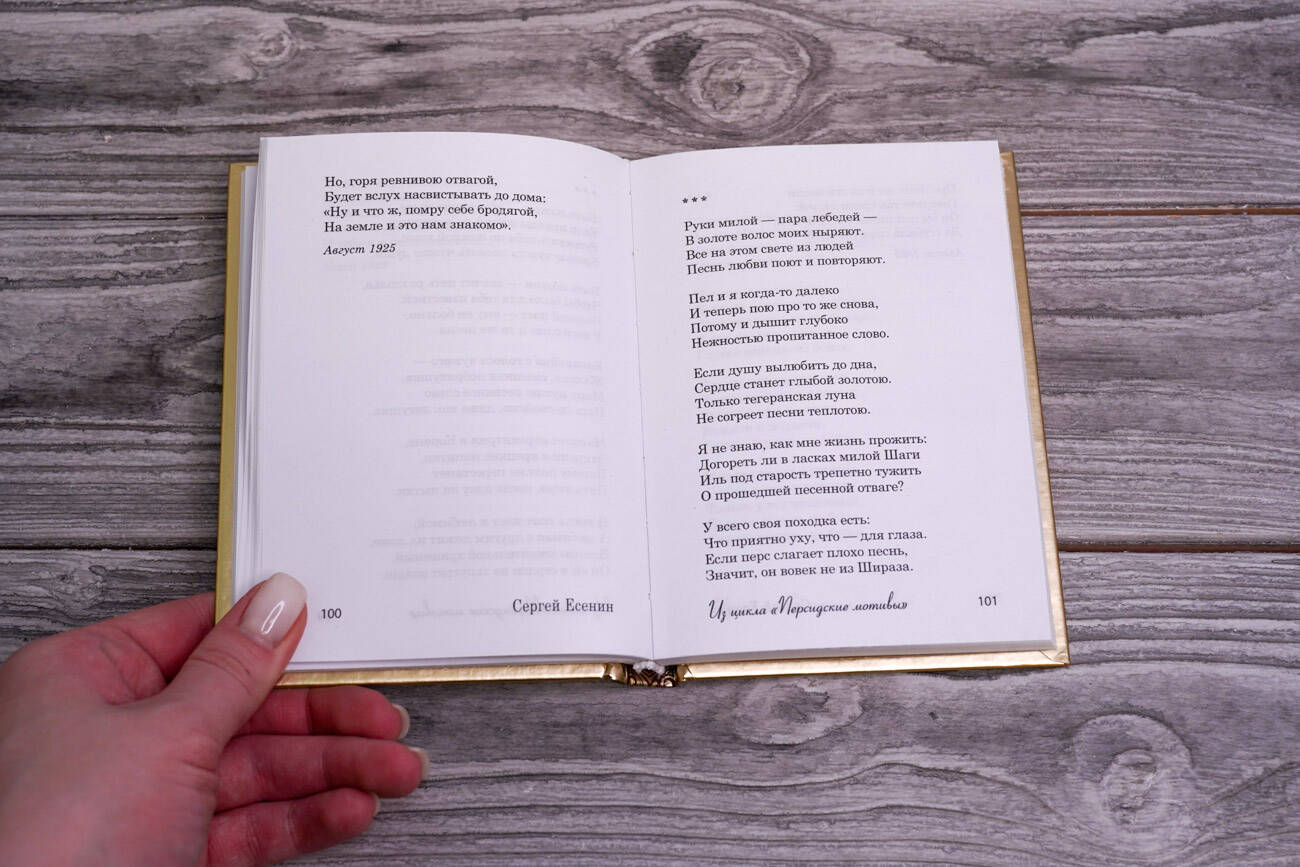 Но, горя ревнивою отвагой,
Будет вслух насвистывать до дома:
«Ну и что ж, помру себе бродягой,
На земле и это нам знакомо».
Август 1925
100
Сергей Есенин
* * *
Руки милой — пара лебедей —
В золоте волос моих ныряют.
Все на этом свете из людей
Песнь любви поют и повторяют.
Пел и я когда-то далеко
И теперь пою про то же снова,
Потому и дышит глубоко
Нежностью пропитанное слово.
Если душу вылюбить до дна,
Сердце станет глыбой золотою.
Только тегеранская луна
Не согреет песни теплотою.
Я не знаю, как мне жизнь прожить:
Догореть ли в ласках милой Шаги
Иль под старость трепетно тужить
О прошедшей песенной отваге?
У всего своя походка есть:
Что приятно уху, что — для глаза.
Если перс слагает плохо песнь,
Значит, он вовек не из Шираза.
Из цикла «Персидские мотивы»
101